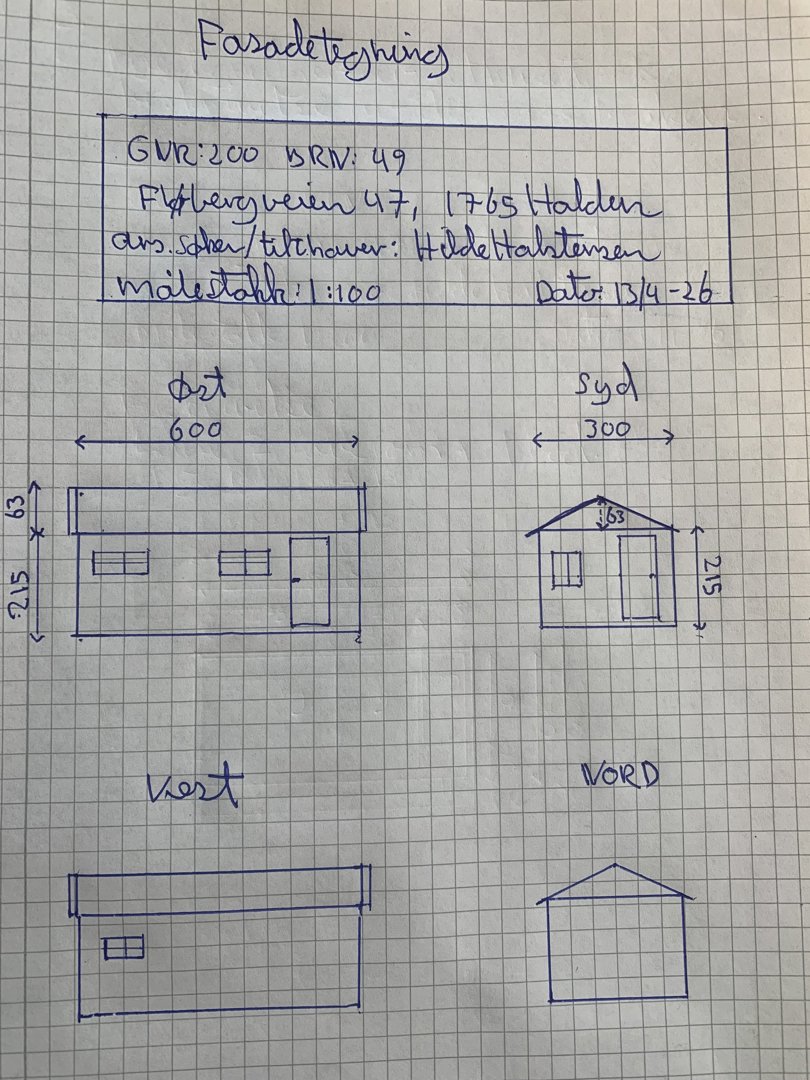 Fasadetegning
GNR:200 BRN: 49
47, 1765 Halden
ans. søker/tiltshaver: Hilde Halstensen
målestokk: 1:100 Dato: 13/4-26
Øst
Syd
600
300
63
63
215
215
Vest
NORD